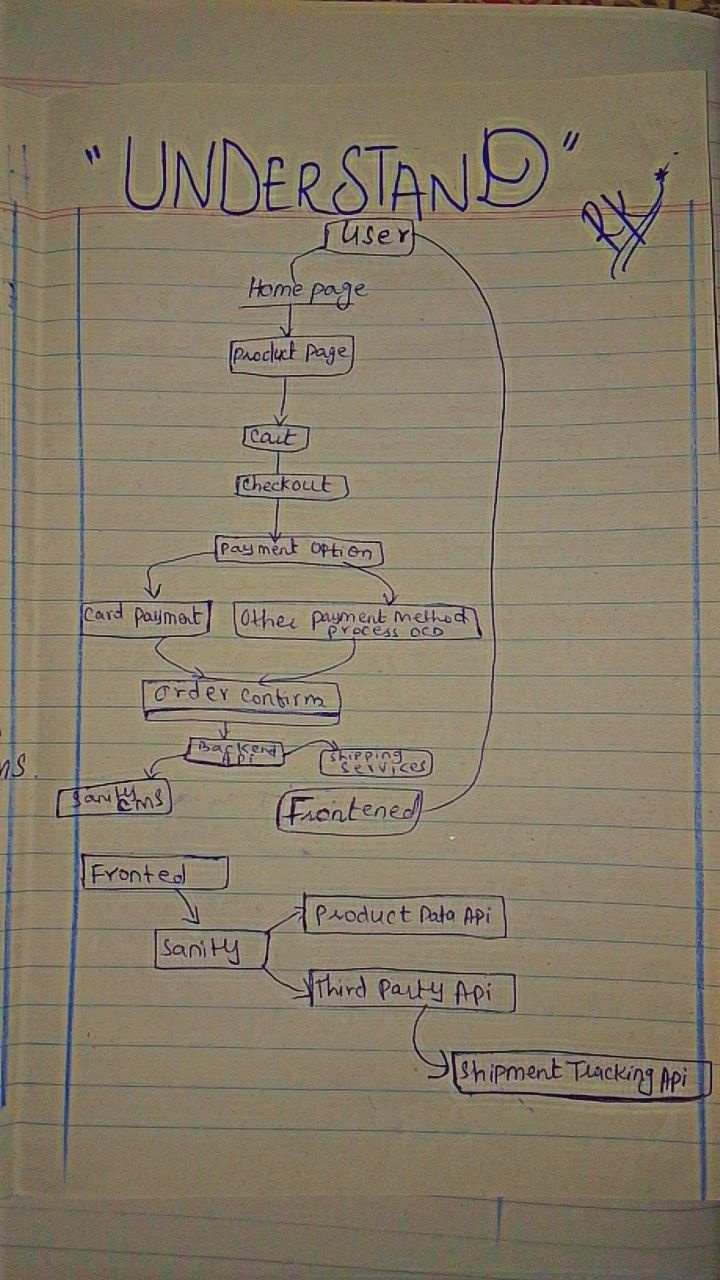 "UNDERSTAND"
RK
User
Home page
Product Page
Cart
Checkout
Payment Option
Card Payment
Other Payment Method
Process OCD
Order Confirm
Backend
Api
Shipping
Services
Sanity
CMS
Frontened
Fronted
Sanity
Product Data Api
Third Party Api
Shipment Tracking Api
ns.